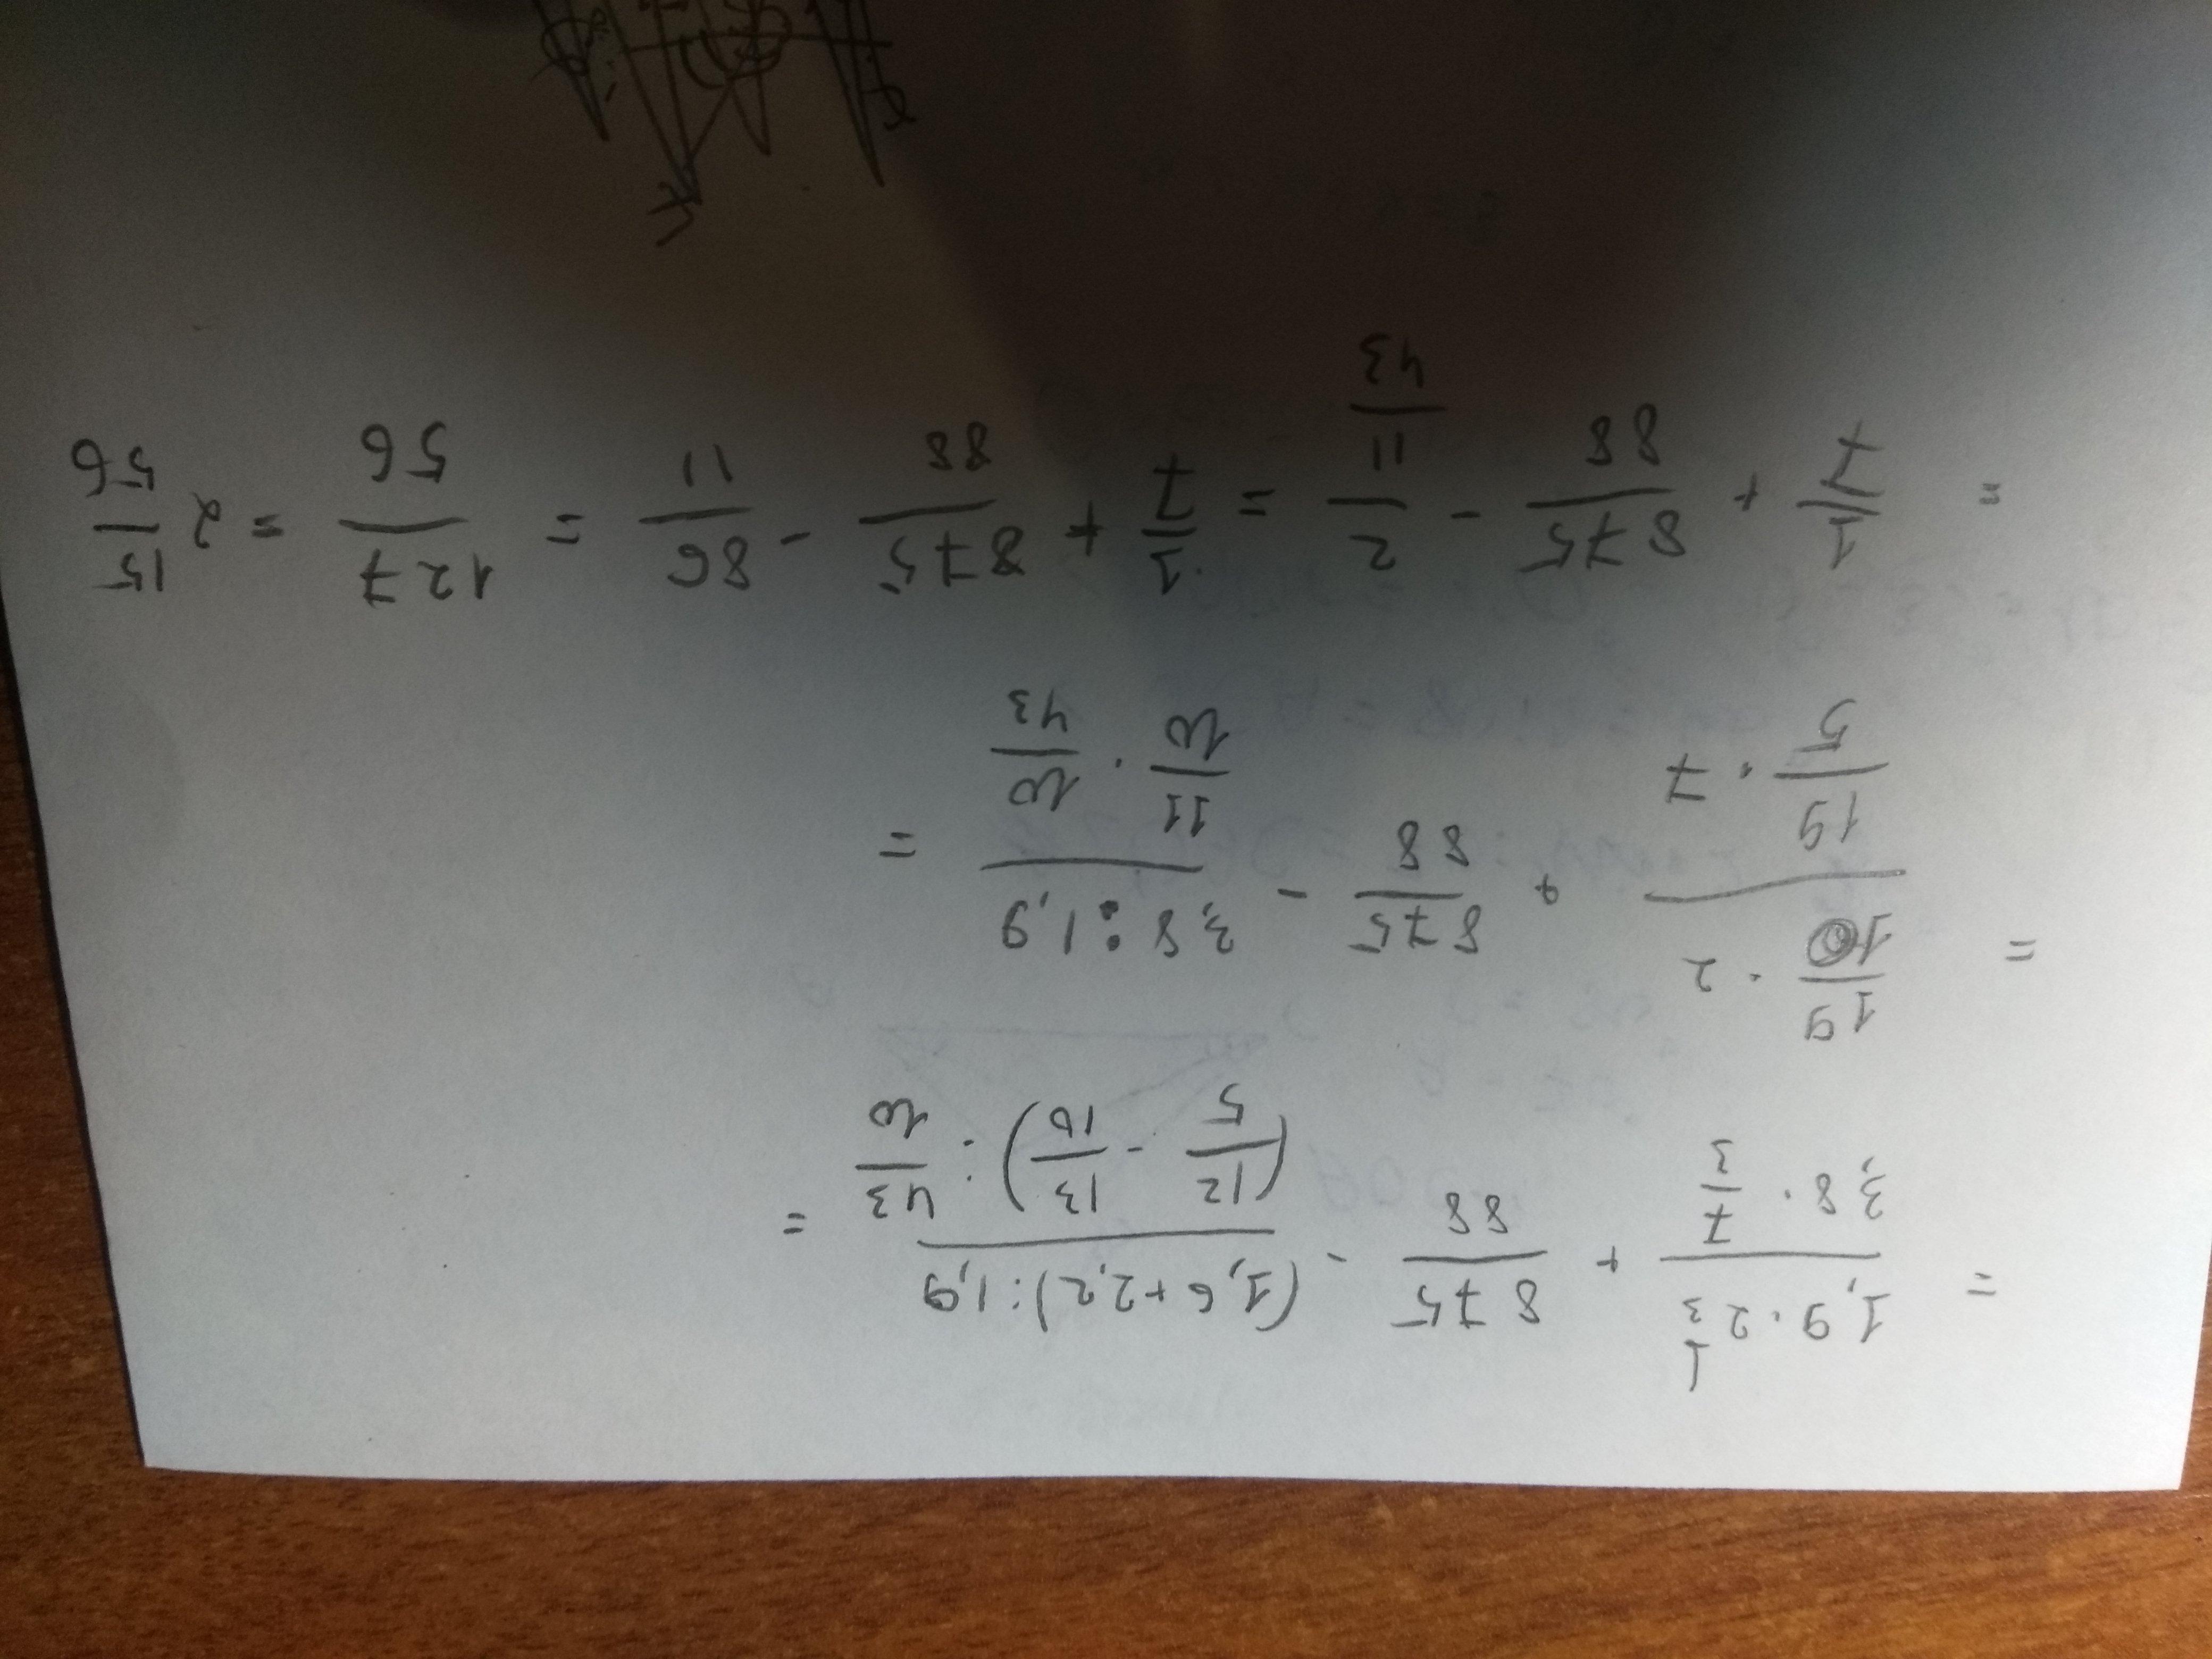 = (1,9 · 2 1/3)/(3,8 · 7/3) + 875/88 - ((1,6+2,2):1,9)/((12/5 - 13/10) : 43/10) =
= (19/10 · 2)/(19/5 · 7) + 875/88 - (3,8 : 1,9)/(11/10 · 10/43) =
= 1/7 + 875/88 - 2/(11/43) = 1/7 + 875/88 - 86/11 = 127/56 = 2 15/56